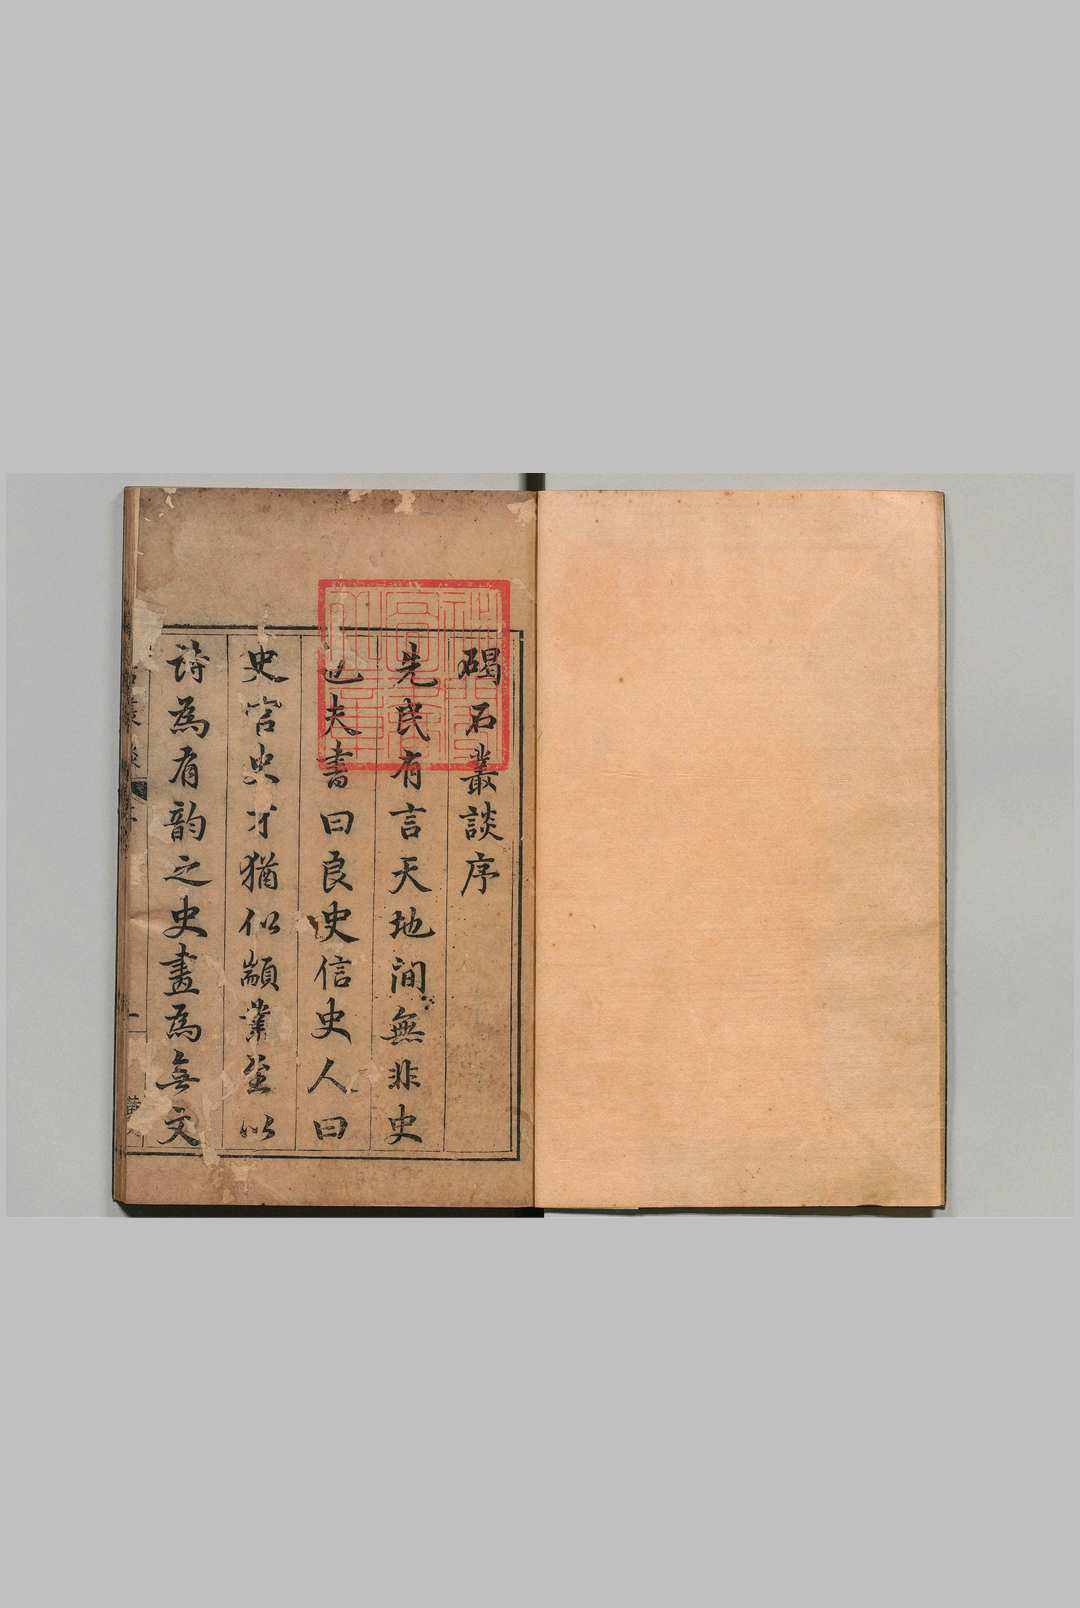 碣石叢談序
先民有言天地間無非史
也夫書曰良史信史人曰
史官史才猶似顓業至以
詩為有韵之史畫為無文